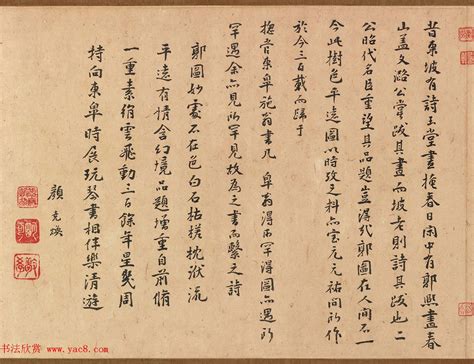 昔東坡有詩玉堂晝掩春日閑中有郭熙畫春
山盖文潞公嘗跋其畫而坡老則詩其跋此二
公昭代名臣重望其品題豈得郭圖在人間不一
今此樹色平遠圖以時攷之料亦宝元元祐間所作
於今三百載而歸于
音東皋施翁書几皋翁得而罕得圖亦遇所
罕遇余亦見所罕見故為之書而繫之詩
郭圖妙處不在色白石枯槎枕漱流
平遠有情含幻境品題增重自前脩
一重素絹雲飛動三百餘年星幾周
持向東皋時展玩琴書相伴樂清遊
顔克焕
书法欣赏 www.yac8.com